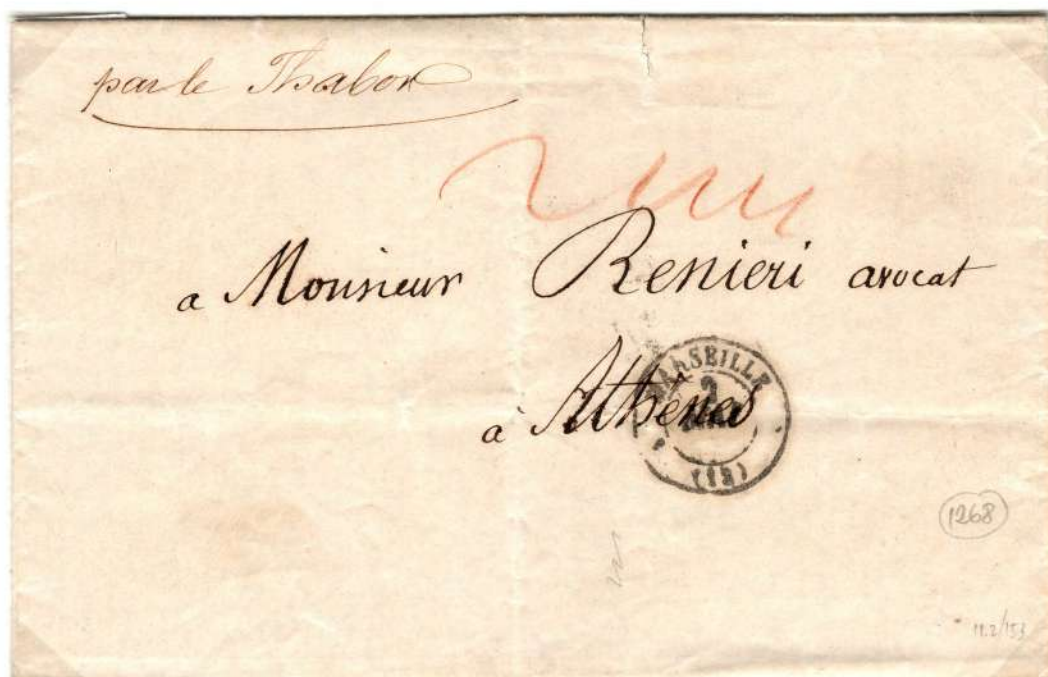 par le Thabor
a Monsieur Renieri avocat
à Athênes
MARSEILLE
(12)
1268